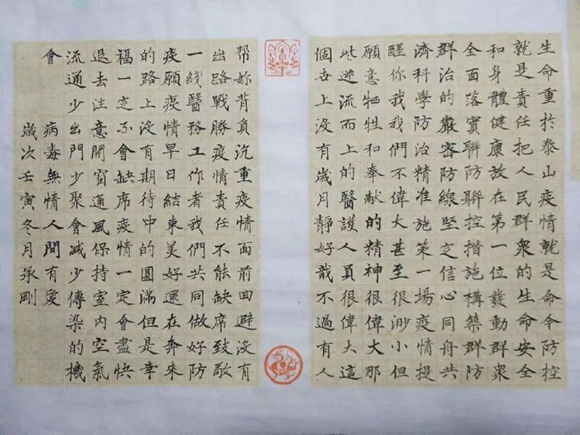 生命重於泰山疫情就是命令防控
就是責任把人民群衆的生命安全
和身體健康放在第一位發動群衆
全面落實聯防聯控措施構築群防
群治的嚴密防線堅定信心同舟共
濟科學防治精准施策一場疫情提
醒你我我們不偉大甚至很渺小但
願意牺牲和奉献的精神很偉大那
些逆流而上的醫護人員很偉大這
個世上没有歲月静好哉不過有人
帮妳背負沉重疫情面前回避没有
出路戰勝疫情責任不能缺席致敬
一线醫務工作者我們共同做好防
疫願疫情早日結束美好還在奔来
的路上没有期待中的圓滿但是幸
福一定不會缺席疫情一定會盡快
退去注意開窗通風保持室内空氣
流通少出門少聚會减少傳染的機
會 病毒無情人間有愛
歲次壬寅冬月承剛